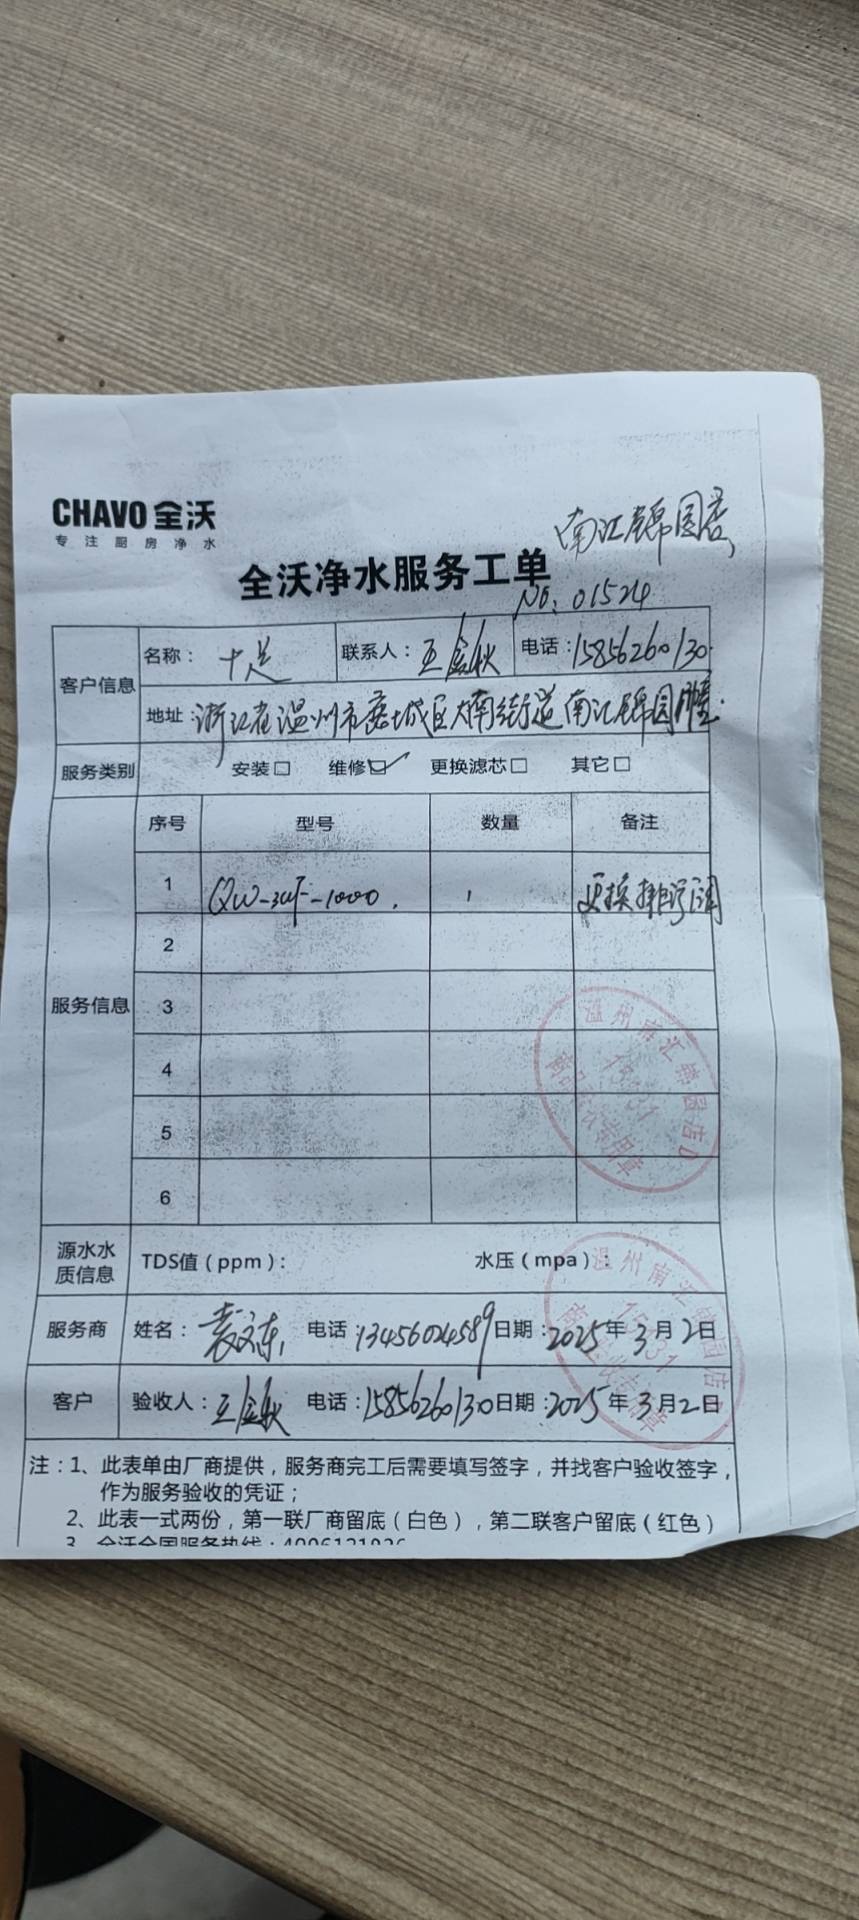 CHAVO 全沃
专注厨房净水
南汇锦园店
全沃净水服务工单
No: 01524
客户信息 名称：十足 联系人：王金秋 电话：15856260130
地址：浙江省温州市鹿城区大南街道南汇锦园
服务类别 安装□ 维修☑ 更换滤芯□ 其它□
服务信息 序号 型号 数量 备注
1 QW-3UF-1000. 1 更换
2
3
4
5
6
温州南汇锦园店
15131
专用章
源水水质信息 TDS值（ppm）： 水压（mpa）：
温州南汇锦园店
15131
商品验收专用章
服务商 姓名：袁文东 电话：13456024589 日期：2025年3月2日
客户 验收人：王金秋 电话：15856260130 日期：2025年3月2日
注：1、此表单由厂商提供，服务商完工后需要填写签字，并找客户验收签字，
作为服务验收的凭证；
2、此表一式两份，第一联厂商留底（白色），第二联客户留底（红色）
3、全沃全国服务热线：